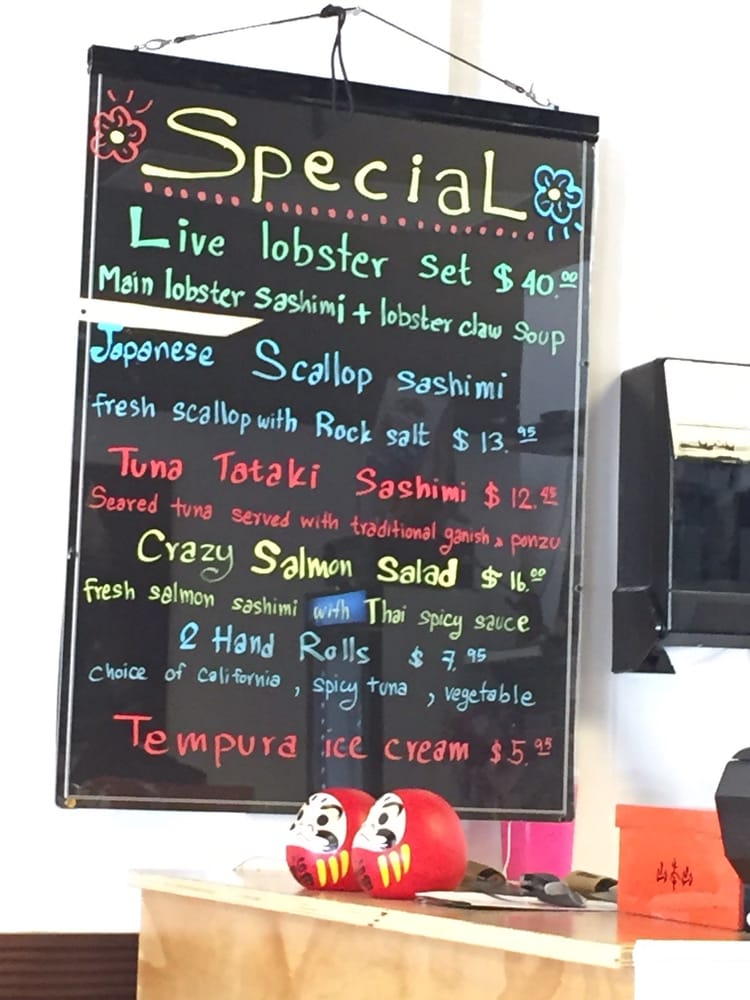 Special
Live lobster set $40.00
Main lobster Sashimi + lobster claw Soup
Japanese Scallop sashimi
fresh scallop with Rock salt $13.95
Tuna Tataki Sashimi $12.45
Seared tuna served with traditional ganish & ponzu
Crazy Salmon Salad $16.00
fresh salmon sashimi with Thai spicy sauce
2 Hand Rolls $7.95
choice of California , spicy tuna , vegetable
Tempura ice cream $5.95